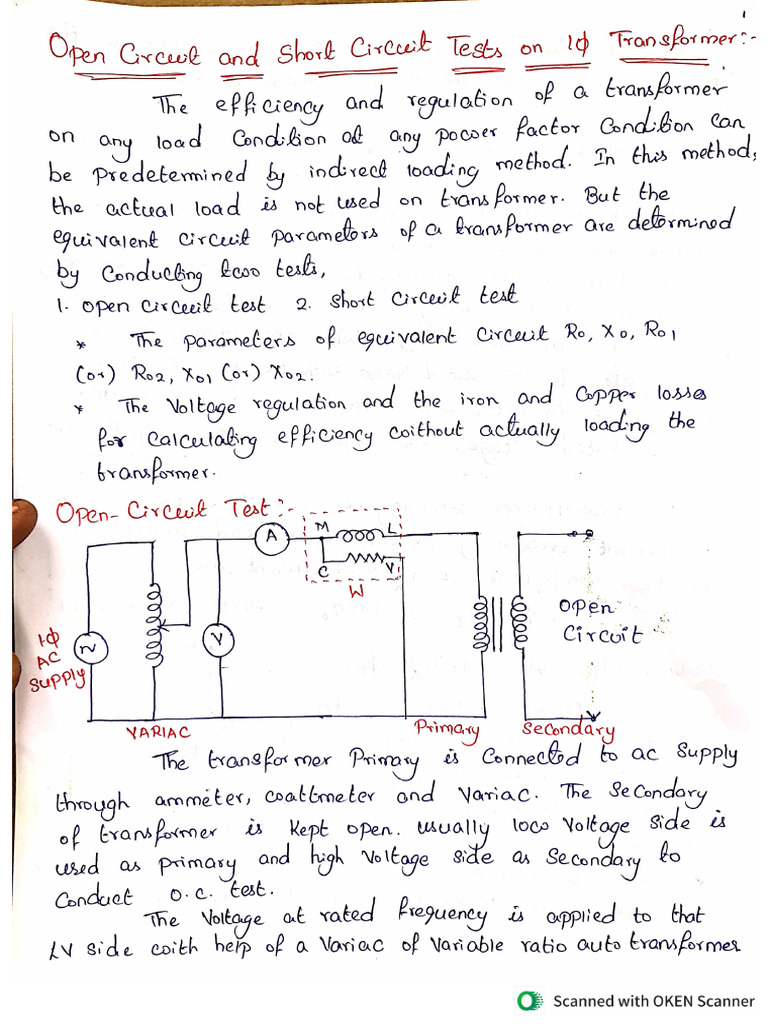 1
Open Circuit and Short Circuit Tests on 1ϕ Transformer:-
The efficiency and regulation of a transformer
on any load Condition at any power factor Condition Can
be Predetermined by indirect loading method. In this method,
the actual load is not used on transformer. But the
equivalent circuit parameters of a transformer are determined
by Conducting two tests,
1. Open circuit test 2. Short Circuit test
* The parameters of equivalent Circuit R0, X0, R01
(or) R02, X01 (or) X02.
* The Voltage regulation and the iron and Copper losses
for calculating efficiency without actually loading the
transformer.
Open-Circuit Test:-
M L
A
C V
W
1ϕ
AC
Supply
~
V
Open
Circuit
VARIAC
Primary
Secondary
The transformer Primary is Connected to ac Supply
through ammeter, wattmeter and Variac. The Secondary
of transformer is Kept open. usually low Voltage Side is
used as primary and high Voltage side as Secondary to
Conduct O.C. test.
The Voltage at rated frequency is applied to that
LV side with help of a Variac of Variable ratio auto transformer
Scanned with OKEN Scanner